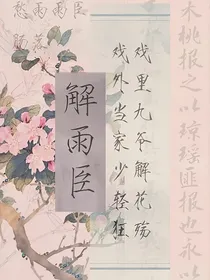 木桃报之以琼瑶匪报也永以
戏里九爷解花殇
戏外当家少轻狂
解雨臣